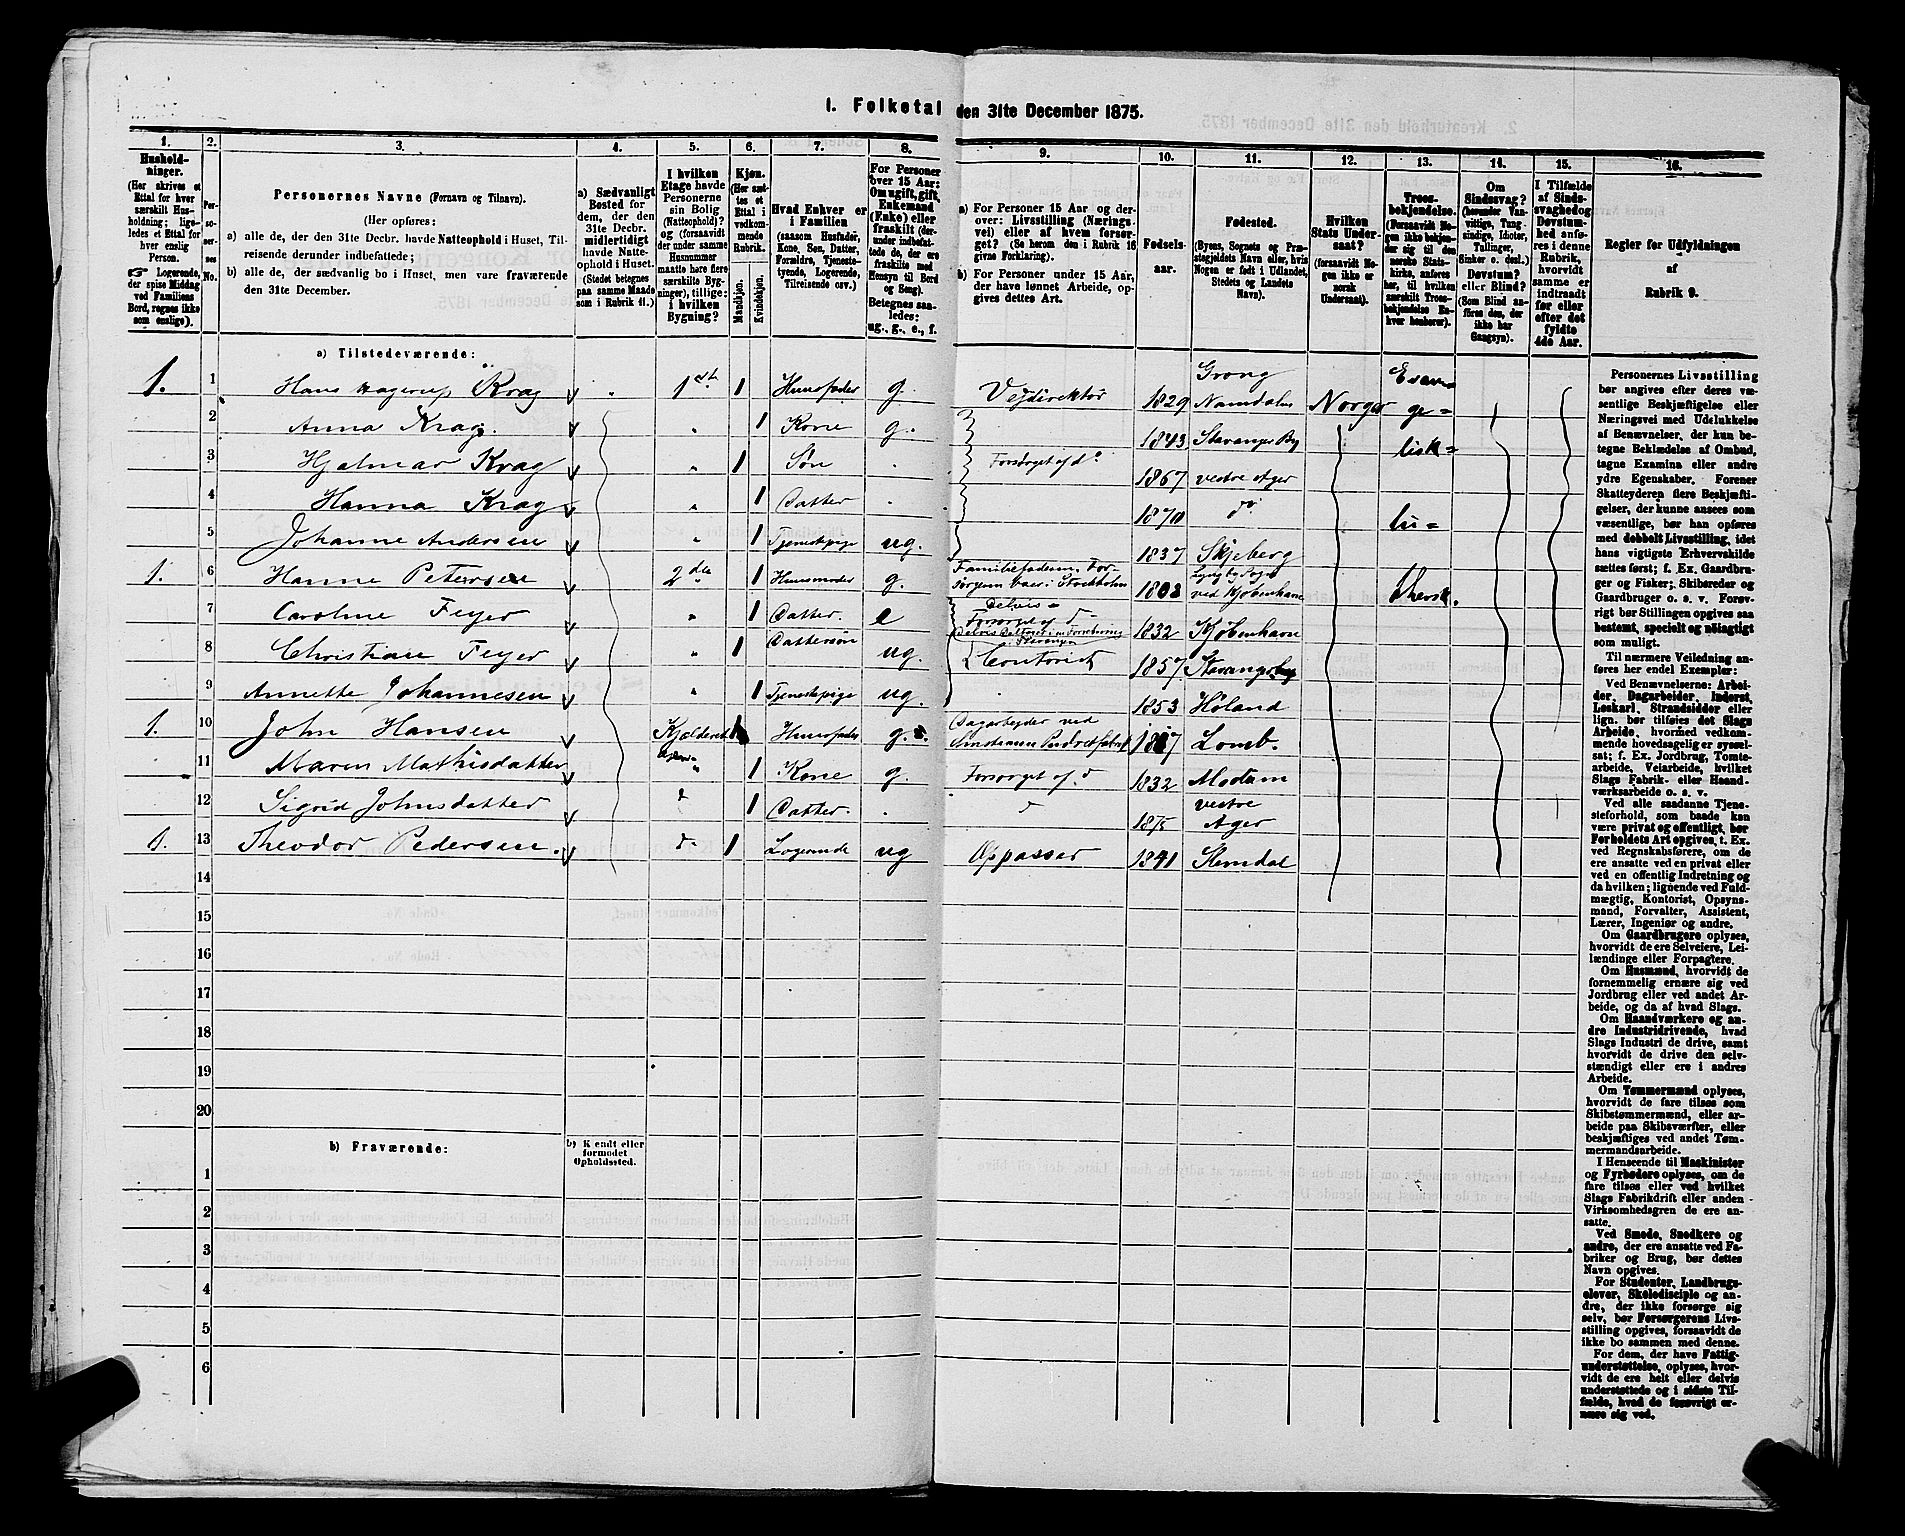 1. Folketal den 31te December 1875.
1.
Hushold-
ninger.
(Her skrives et
Ettal for hver
særskilt Hus-
holdning; lige-
ledes et Ettal for
hver enslig
Person.
☞ Logerende,
der spise Middag
ved Familiens
Bord, regnes ikke
som enslige).
2.
Per-
so-
ner-
nes
No.
3.
Personernes Navne (Fornavn og Tilnavn).
(Her opføres:
a) alle de, der den 31te Decbr. havde Natteophold i Huset, Til-
reisende derunder indbefattede;
b) alle de, der sædvanlig bo i Huset, men vare fraværende
den 31te December.
4.
a) Sædvanligt
Bosted for
dem, der den
31te Decbr.
midlertidigt
havde Natte-
ophold i Huset.
(Stedet betegnes
paa samme Maade
som i Rubrik 11.)
5.
I hvilken
Etage havde
Personerne
sin Bolig
(Natteophold)?
og (forsaavidt
der under samme
Husnummer
maatte høre flere
særskilte Byg-
ninger), tillige:
i hvilken
Bygning?
6.
Kjøn.
(Her sæt-
tes et
Ettal i
vedkom-
mende
Rubrik.
Mandkjøn.
Kvindekjøn.
7.
Hvad Enhver er
i Familien
(saasom Husfader,
Kone, Søn, Datter,
Forældre, Tjeneste-
tyende, Logerende,
Tilreisende osv.)
8.
For Personer
over 15 Aar:
Om ugift, gift,
Enkemand
(Enke) eller
fraskilt (der-
under indbefat-
tede de, der ere
fraskilte med
Hensyn til Bord
og Seng).
Betegnes saa-
ledes:
ug., g., e., f.
9.
a) For Personer 15 Aar og der-
over: Livsstilling (Nærings-
vei) eller af hvem forsør-
get? (Se herom den i Rubrik 16
givne Forklaring).
b) For Personer under 15 Aar,
der have lønnet Arbeide, op-
gives dettes Art.
10.
Fødsels-
aar.
11.
Fødested.
(Byens, Sognets og Præ-
stegjeldets Navn eller, hvis
Nogen er født i Udlandet,
Stedets og Landets
Navn).
12.
Hvilken
Stats Under-
saat?
(forsaavidt No-
gen ikke er
norsk
Undersaat).
13.
Troes-
bekjendelse.
(Forsaavidt No-
gen ikke bekjen-
der sig til den
norske Stats-
kirke, anføres
her, til hvilken
særskilt Troes-
bekjendelse En-
hver henhører).
14.
Om
Sindssvag?
(herunder Van-
vittige, Tung-
sindige, Idioter,
Tullinger,
Sinker o. desl.)
Døvstum?
eller Blind?
(Som Blind an-
føres den, der
ikke har
Gangsyn).
15.
I Tilfælde
af Sinds-
svaghed og
Døvstum-
hed anfø-
res i denne
Rubrik,
hvorvidt
samme er
indtraadt
før eller
efter det
fyldte
4de Aar.
16.
Regler for Udfyldningen
af
Rubrik 9.
a) Tilstedeværende:
1. 1 Hans Hagerup Krag 1 st. 1 Huusfader g. Vejdirektør 1829 Grong Namdalen Norge Evan=
2 Anna Krag. " 1 Kone g. 1843 Stavanger By ge=
3 Hjalmar Krag " 1 Søn . Forsørget af do 1867 vestre Ager lisk=
4 Hanna Krag " 1 Datter . 1870 do
5 Johanne Andersen " 1 Tjenestpige ug. 1837 Skjeberg lu=
1. 6 Hanne Petersen 2 den 1 Huusmoder g. Familiefaderen, For-
sørgeren boer i Stockholm 1808 Lyngby Sogn
ved Kjøbenhavn thersk.
7 Caroline Fejer " 1 Datter. e Delvis=
Forsørget af d 1832 Kjøbenhavn
8 Christian Fejer " 1 Dattersøn ug. Contorist 1857 Stavanger by
9 Annette Johannesen " 1 Tjenestpige ug. 1853 Høland
1. 10 John Hansen Kjelderet 1 Huusfader g. Dagarbejder ved 1817 Lomb.
11 Maren Mathisdatter " 1 Kone g. Forsørget af d 1832 Modum
12 Sigrid Johnsdatter d 1 Datter. . d 1875 vestre
Ager
1. 13 Theodor Pedersen. d 1 Logerende ug Oppasser 1841 Stendal
14
15
16
17
18
19
20
b) Fraværende:
b) Kjendt eller
formodet
Opholdssted.
1
2
3
4
5
6
Personernes Livsstilling
bør angives efter deres væ-
sentlige Beskjæftigelse eller
Næringsvei med Udelukkelse
af Benævnelser, der kun be-
tegne Beklædelse af Ombud,
tagne Examina eller andre
ydre Egenskaber. Forener
Skatteyderen flere Beskjæfti-
gelser, der kunne ansees som
væsentlige, bør han opføres
med dobbelt Livsstilling, idet
hans vigtigste Erhvervskilde
sættes først; f. Ex. Gaardbru-
ger og Fisker; Skibsreder og
Gaardbruger o. s. v. Forøv-
rigt bør Stillingen opgives saa
bestemt, specielt og nøiagtigt
som muligt.
Til nærmere Veiledning an-
føres her endel Exempler:
Ved Benævnelserne: Arbei-
der, Dagarbeider, Inderst,
Løskarl, Strandsidder eller
lign. bør tilføies det Slags
Arbeide, hvormed vedkom-
mende hovedsagelig er syssel-
sat; f. Ex. Jordbrug, Tomte-
arbeide, Veiarbeide, hvilket
Slags Fabrik- eller Haand-
værksarbeide o. s. v.
Ved alle saadanne Tjene-
steforhold, som baade kan
være privat og offentligt, bør
Forholdets Art opgives, t. Ex.
ved Regnskabsførere, om de
ere ansatte ved en privat eller
ved en offentlig Indretning og
da hvilken; lignende ved Fuld-
mægtig, Kontorist, Opsyns-
mand, Forvalter, Assistent,
Lærer, Ingeniør og andre.
Om Gaardbrugere oplyses,
hvorvidt de ere Selveiere, Lei-
lændinge eller Forpagtere.
Om Husmænd, hvorvidt de
fornemmelig ernære sig ved
Jordbrug eller ved andet Ar-
beide, og da af hvad Slags.
Om Haandværkere og an-
dre Industridrivende, hvad
Slags Industri de drive, samt
hvorvidt de drive den selv-
stændigt eller ere i andres
Arbeide.
Om Tømmermænd oplyses,
hvorvidt de fare tilsøs som
Skibstømmermænd, eller ar-
beide paa Skibsværfter, eller
beskjæftiges ved andet Tøm-
mermandsarbeide.
I Henseende til Maskinister
og Fyrbødere oplyses, om de
fare tilsøs eller ved hvilket
Slags Fabrikdrift eller anden
Virksomhedsgren de ere an-
satte.
Ved Smede, Snedkere og
andre, der ere ansatte ved Fa-
briker og Brug, bør dettes
Navn opgives.
For Studenter, Landbrugs-
elever, Skoledisciple og an-
dre, der ikke forsørge sig
selv, bør Forsørgerens Livs-
stilling opgives, forsaavidt de
ikke bo sammen med denne.
For dem, der have Fattig-
understøttelse, oplyses, hvor-
vidt de ere helt eller delvis
understøttede og i sidste Til-
fælde, hvad de forøvrigt er-
nære sig ved.